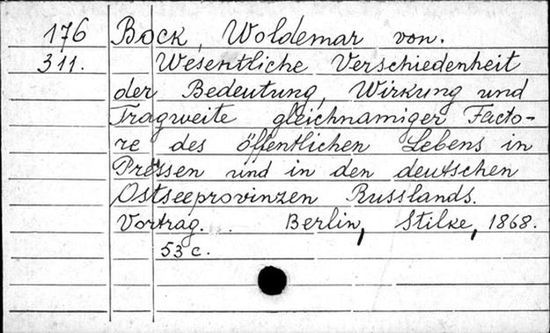 176 Bock, Woldemar von.
311. Wesentliche Verschiedenheit
der Bedeutung, Wirkung und
Tragweite gleichnamiger Facto-
re des öffentlichen Lebens in
Pressen und in den deutschen
Ostseeprovinzen Russlands.
Vortrag. . Berlin, Stilke, 1868.
53 c.